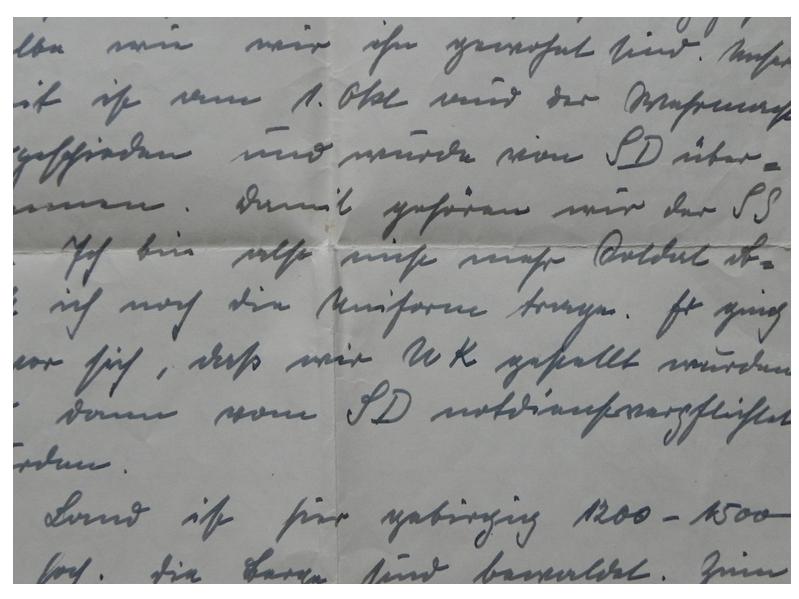 lbe wie wir ihn gewohnt sind. Unser
it ist am 1. Okt aus der Wehrmach
geschieden und wurde von SD über=
mmen. Damit gehören wir der SS
. Ich bin also nicht mehr Soldat ob=
ich noch die Uniform trage. Er ging
vor sich, daß wir UK gestellt wurden
dann vom SD notdienstverpflichtet
rden.
Land ist hier gebirgig 1200 – 1500
hoch. Die Berge sind bewaldet. Zum